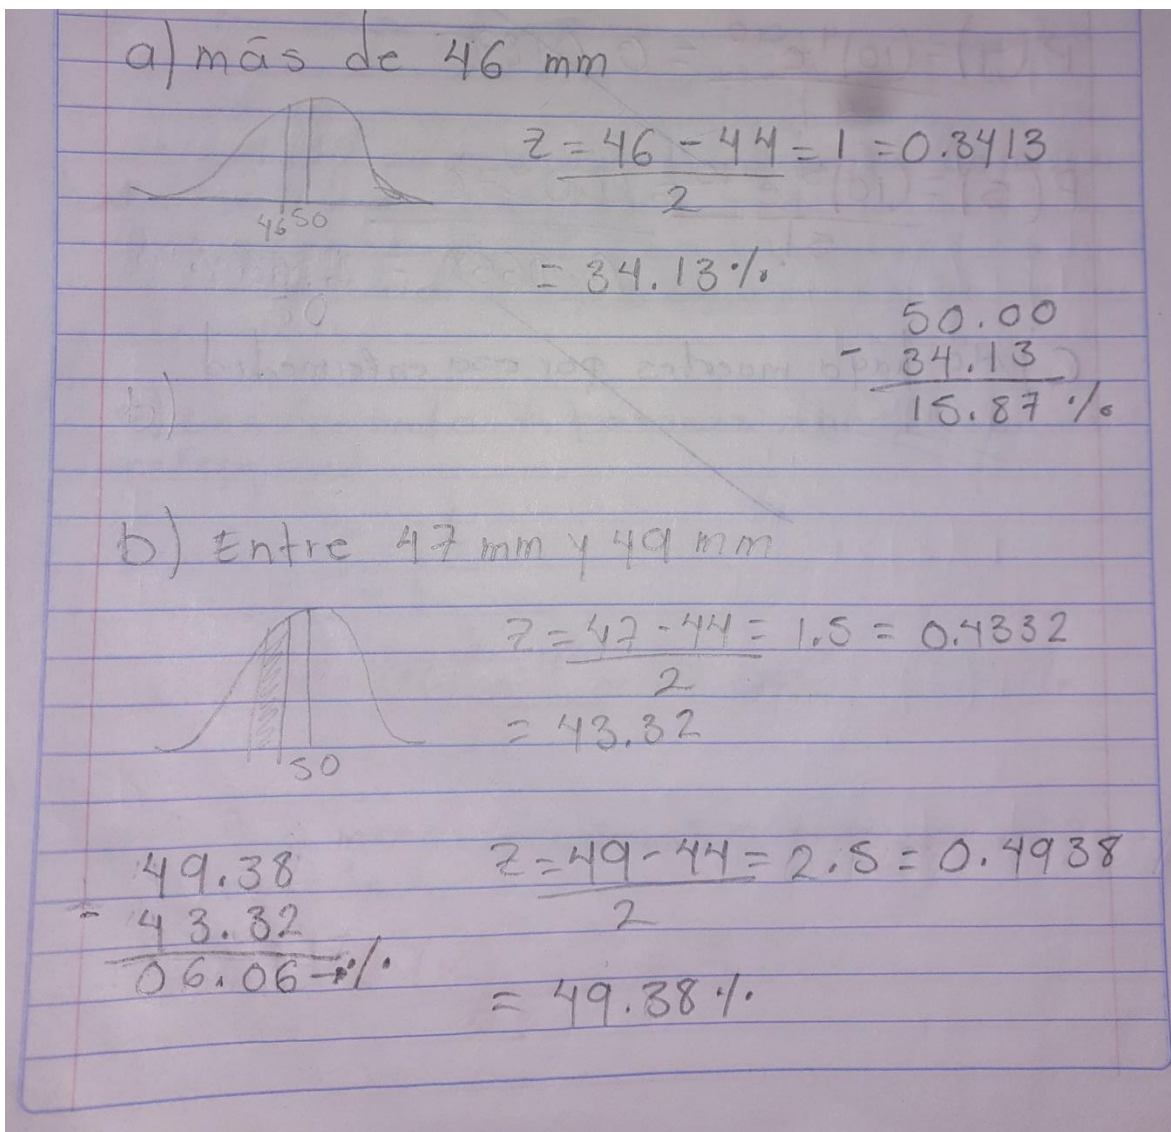 a) más de 46 mm
z = 46 - 44 = 1 = 0.3413
2
46 50
= 34.13 %
50.00
- 34.13
15.87 %
b)
b) Entre 47 mm y 49 mm
z = 47 - 44 = 1.5 = 0.4332
2
= 43.32
50
49.38
- 43.32
06.06 %
z = 49 - 44 = 2.5 = 0.4938
2
= 49.38 %